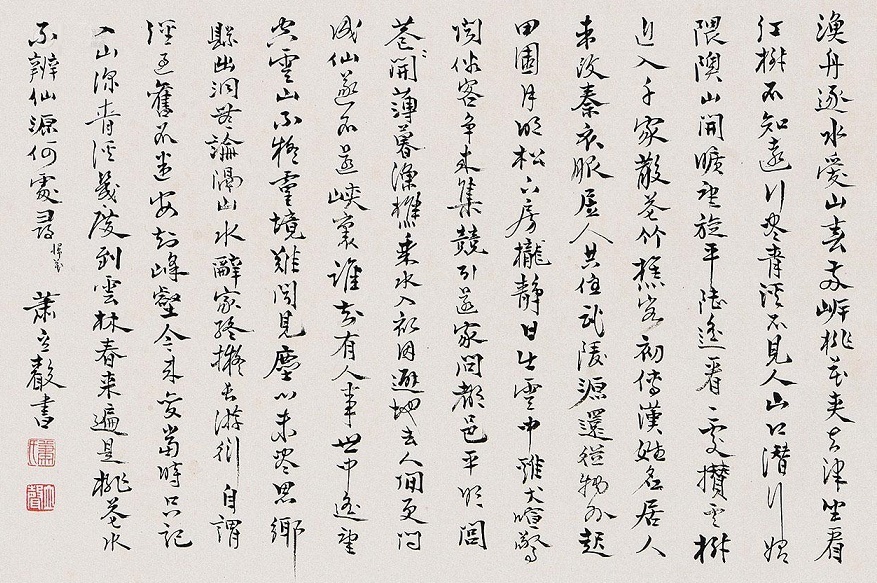 漁舟逐水愛山春兩岸桃花夾去津坐看
紅樹不知遠行盡青溪不見人山口潛行始
隈隩山開曠望旋平陸遙看一處攢雲樹
近入千家散花竹樵客初傳漢姓名居人
未改秦衣服居人共住武陵源還從物外起
田園月明松下房櫳靜日出雲中雞犬喧驚
聞俗客爭來集競引還家問都邑平明閭
巷開薄暮漁樵乘水入初因避地去人間更問
成仙遂不還峽裏誰知有人事世中遙望
空雲山不疑靈境難聞見塵心未盡思鄉
縣出洞無論隔山水辭家終擬長游衍自謂
經過舊不迷安知峰壑今來變當時只記
入山深青溪幾度到雲林春來遍是桃花水
不辨仙源何處尋 掃花 蕭立聲書